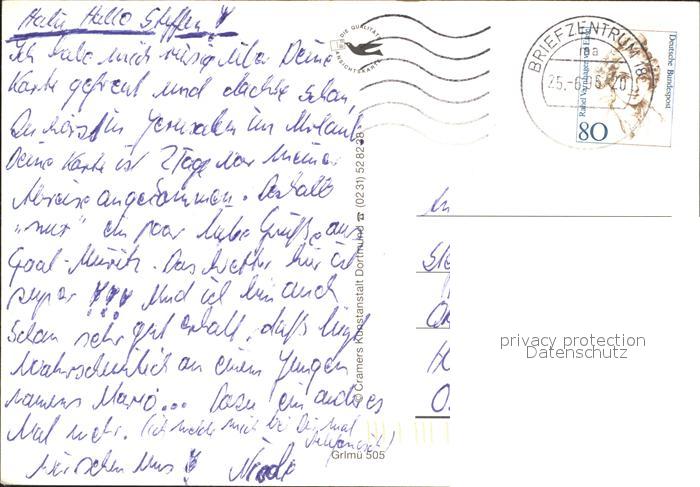 Hallo Hallo Steffen!
Ich habe mich riesig über Deine
Karte gefreut und dachte schon,
Du wärst in Jerusalem im Urlaub
Deine Karte ist 2 Tage vor meiner
Abreise angekommen. Deshalb
"nur" ein paar liebe Grüße aus
Graal-Müritz. Das Wetter hier ist
super!!! Und ich bin auch
schon sehr gut erholt, daß liegt
Wahrscheinlich an einem Jungen
namens Mario... Dazu ein anderes
Mal mehr. (ich melde mich bei Dir mal
telefonisch)
Küsschen Nicole
DIE QUALITÄTS
ANSICHTSKARTE
© Cramers Kunstanstalt Dortmund ☎ (0231) 528238
Grlmü 505
BRIEFZENTRUM 18
ma
25.-6.95-20
Deutsche Bundespost
Rahel Varnhagen von Ense
80
privacy protection
Datenschutz